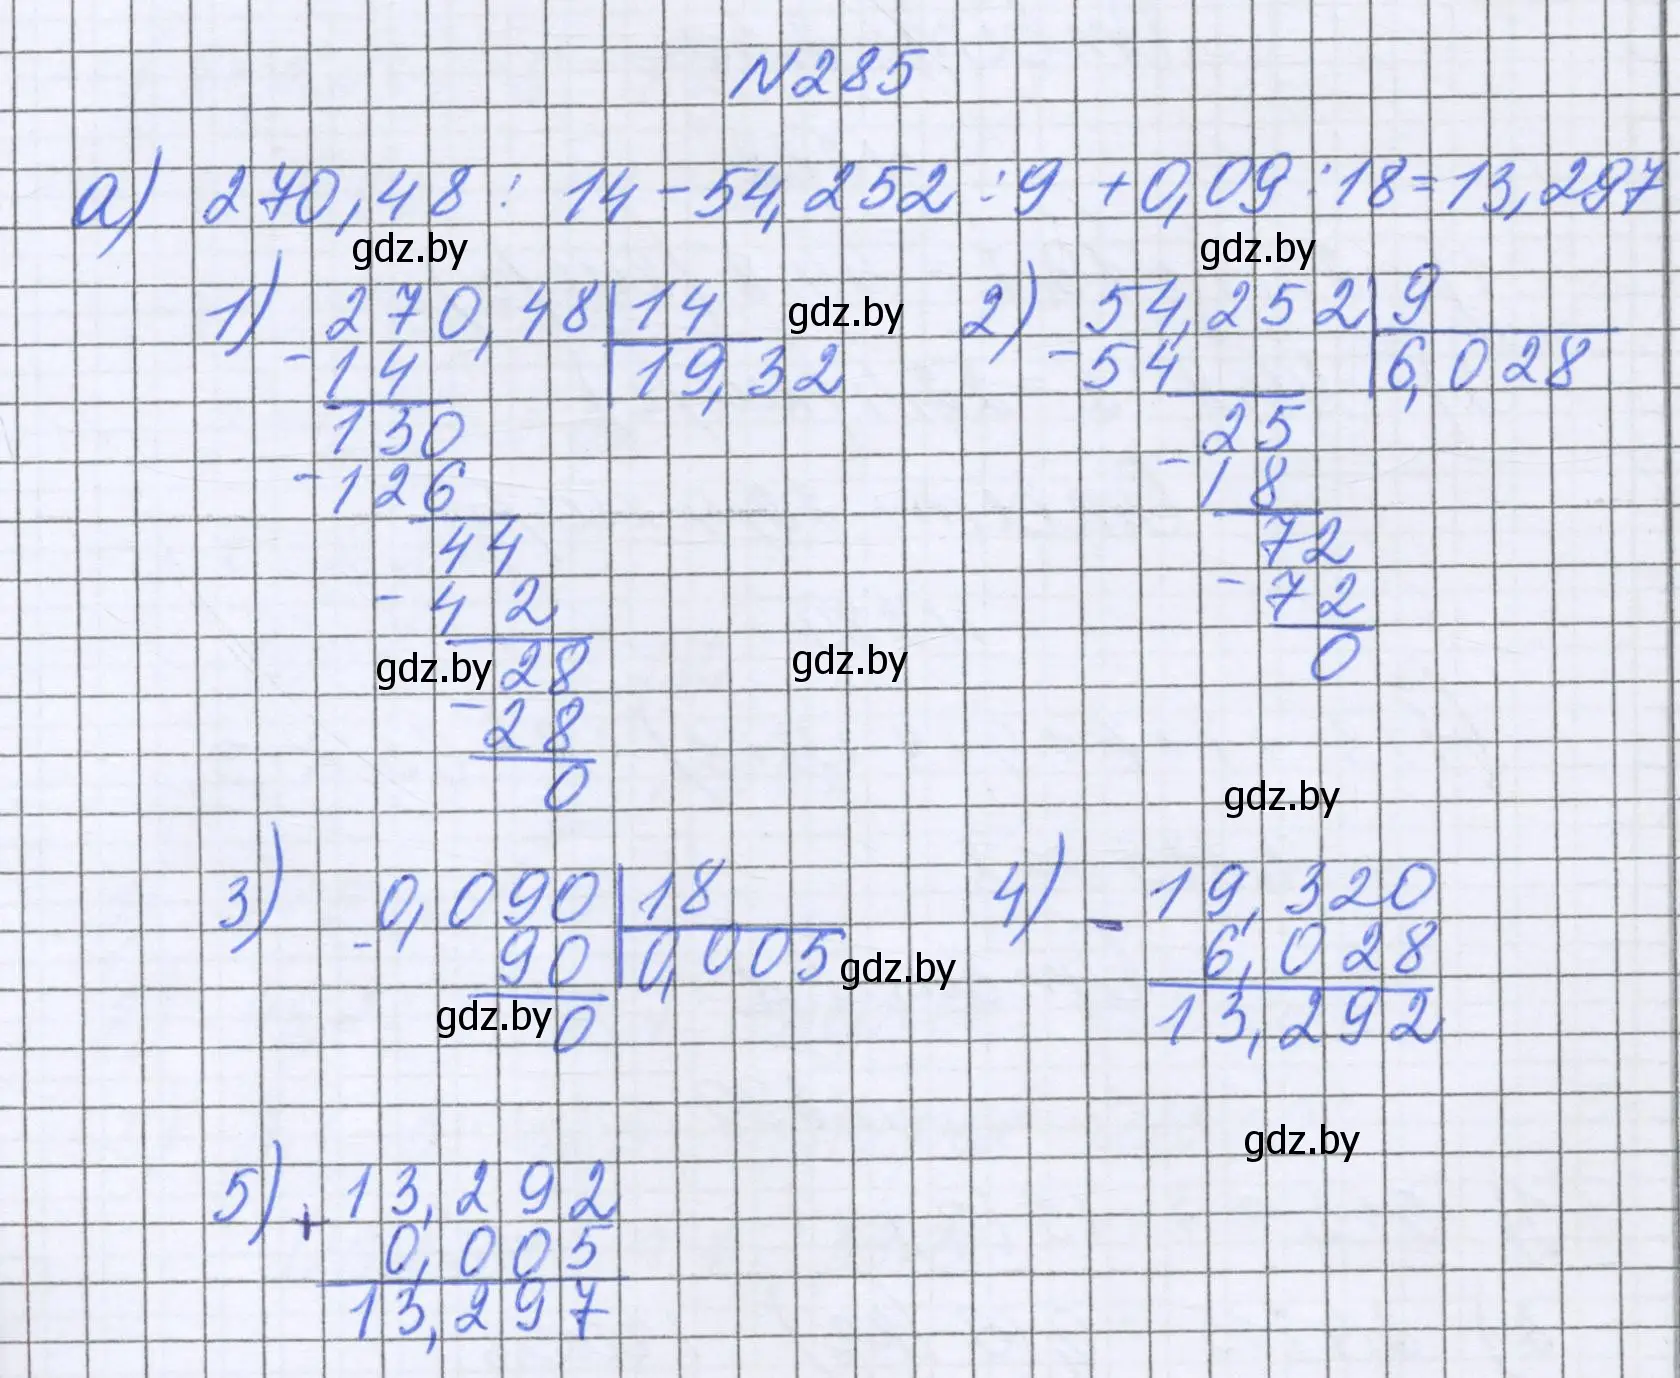 N285
а) 270,48 : 14 - 54,252 : 9 + 0,09 : 18 = 13,297
gdz.by gdz.by
1) 270,48 | 14
-14 | 19,32
130
-126
44
-42
28
-28
0
gdz.by
2) 54,252 | 9
-54 | 6,028
25
-18
72
-72
0
gdz.by gdz.by
gdz.by
3) 0,090 | 18
-90 | 0,005
0
gdz.by gdz.by
4) - 19,320
6,028
13,292
gdz.by
5) + 13,292
0,005
13,297